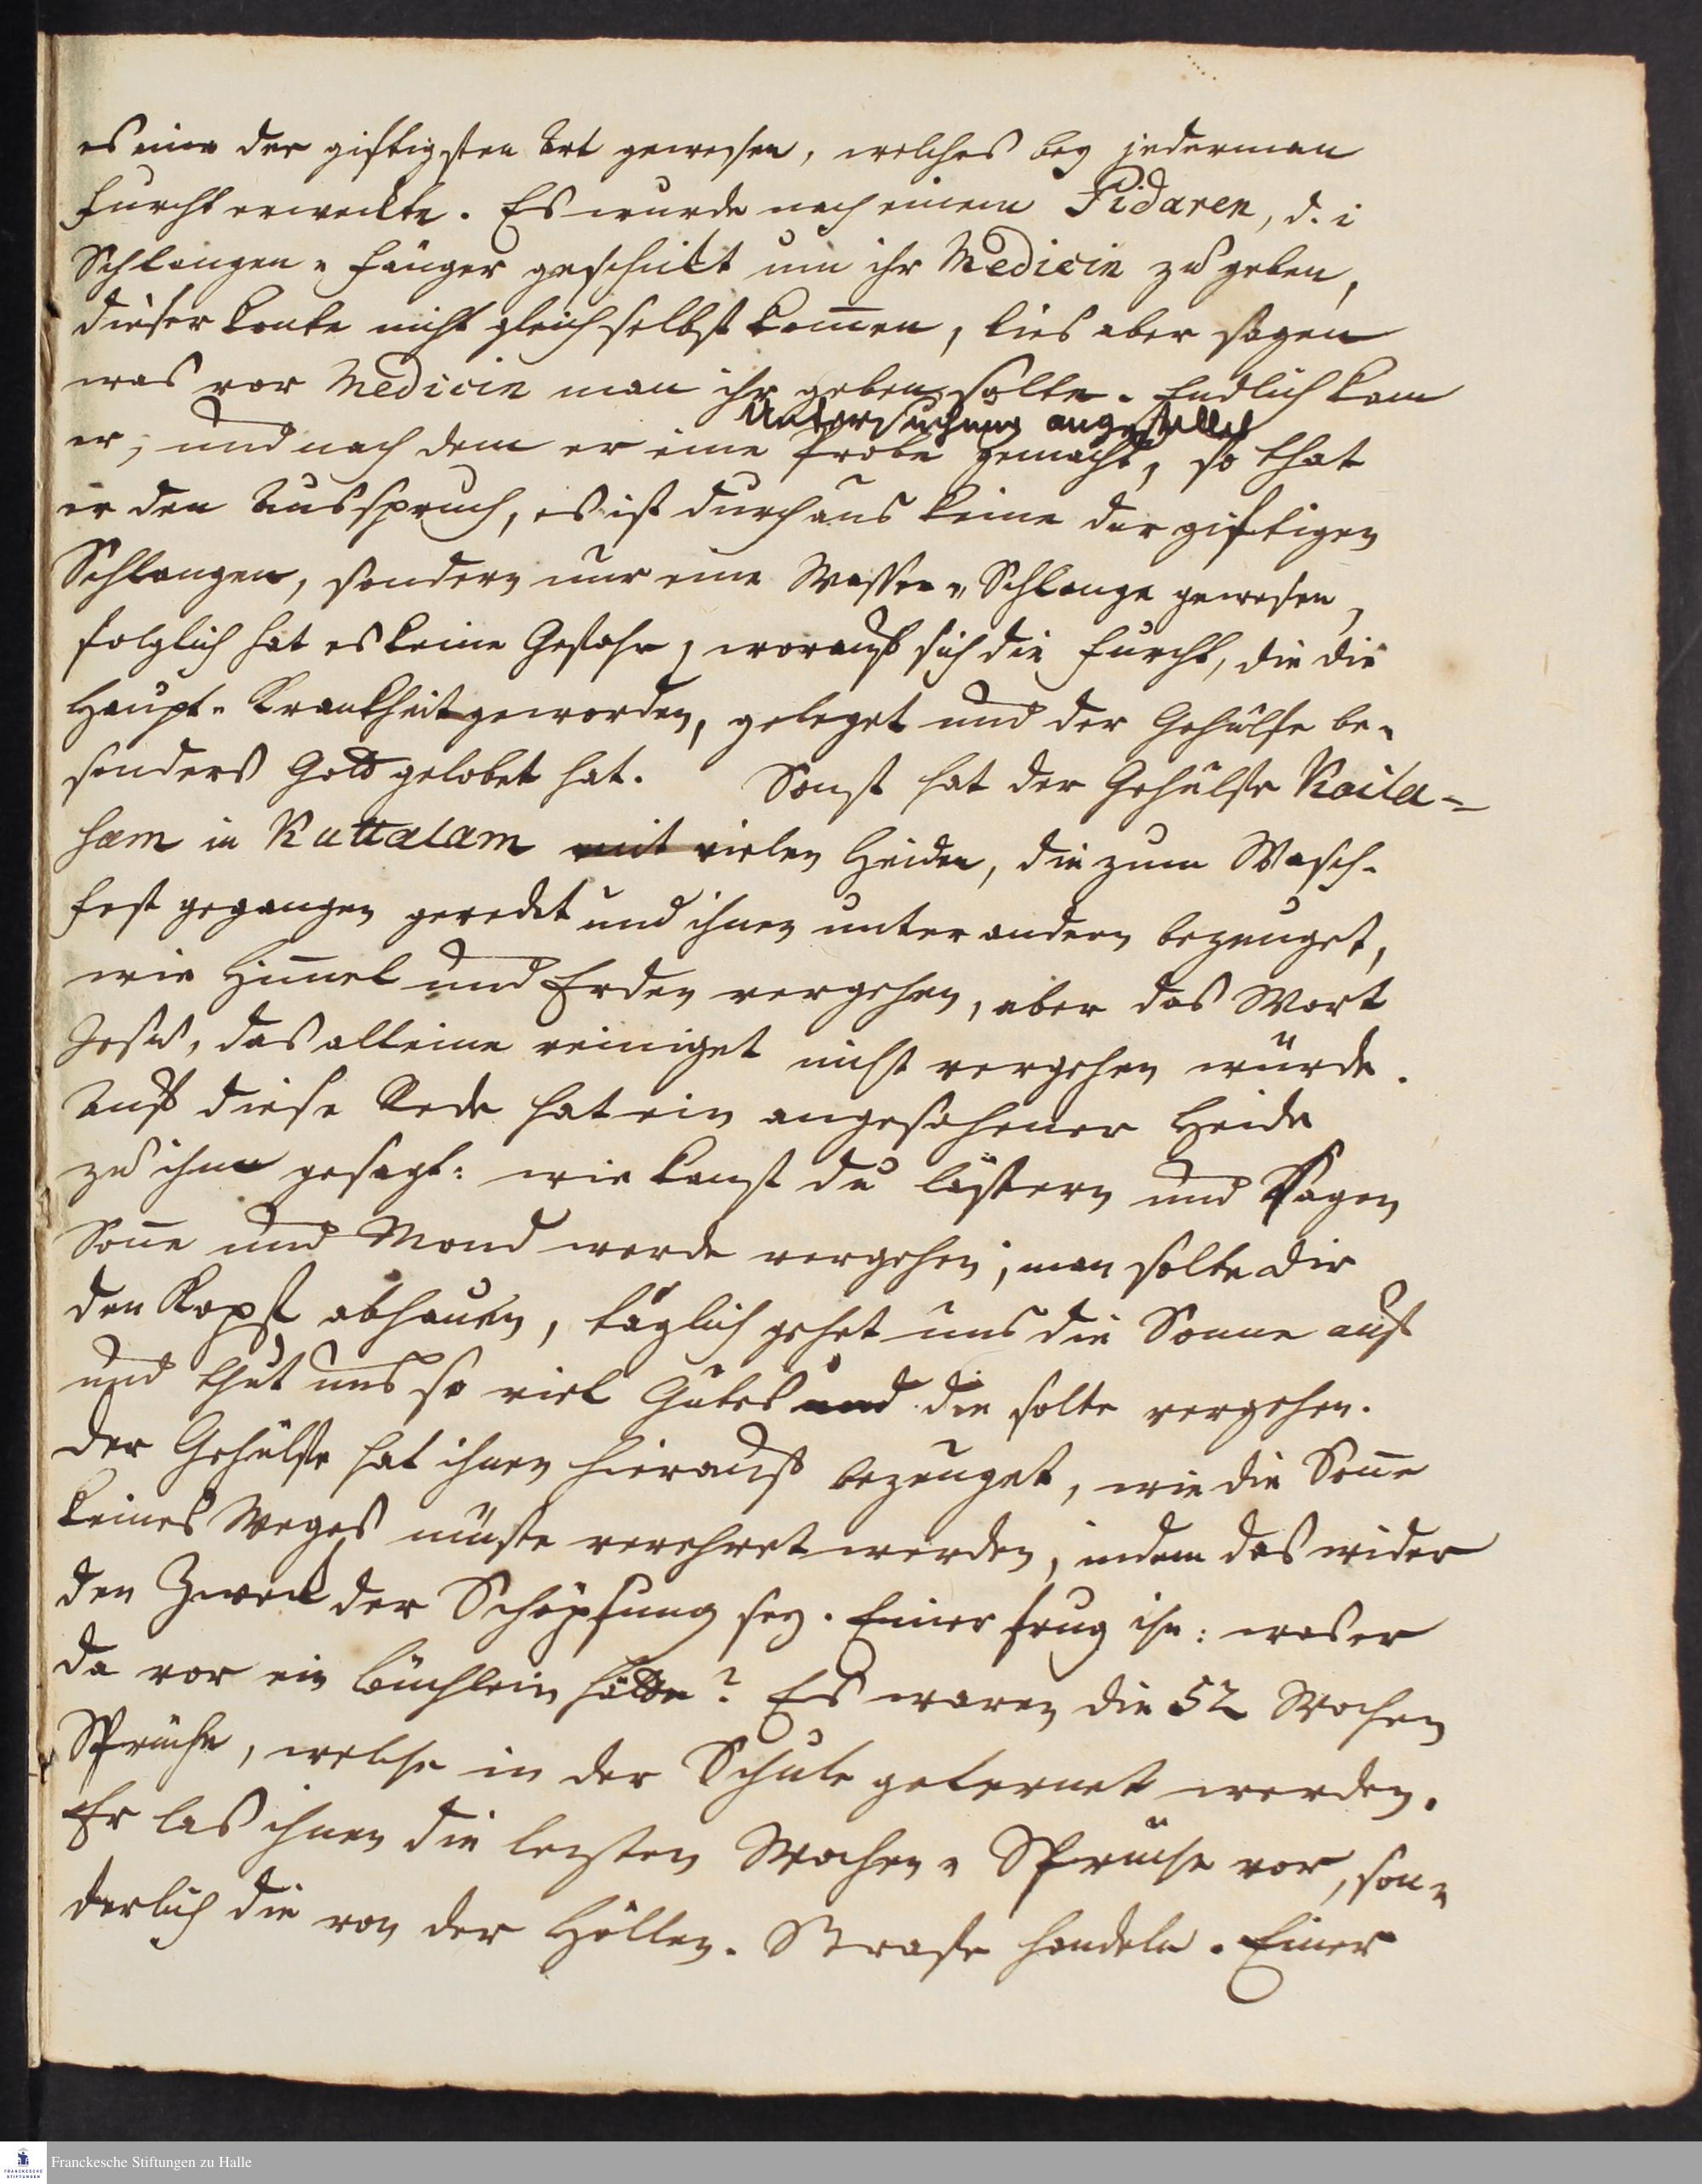 es eine der giftigsten Art gewesen, welches bey jederman
Furcht erweckte. Es wurde nach einem Pidaren, d. i
Schlangen-Fänger geschickt um ihr Medicin zu geben,
dieser konte nicht gleich selbst kom̄en, lies aber sagen
was vor Medicin man ihr geben solte. Endlich kam
Untersuchung angestellet
er, und nach dem er eine Probe gemacht, so that
er den Ausspruch, es ist durchaus keine der giftigen
Schlangen, sondern nur eine Wasser-Schlange gewesen,
folglich hat es keine Gefahr, worauf sich die Furcht, die die
Haupt-Krankheit geworden, geleget und der Gehülfe be-
sonders Gott gelobet hat. Sonst hat der Gehülfe Kaila-
sam in Kuttalam mit vielen Heiden, die zum Wasch-
fest gegangen geredet und ihnen unter andern bezeuget,
wie Him̄el und Erden vergehen, aber das Wort
Jesu, das alleine reiniget nicht vergehen würde.
Auf diese Rede hat ein angesehener Heide
zu ihm gesagt: wie kanst du lästern und sagen
Son̄e und Mond werde vergehen; man solte dir
den Kopf abhauen, täglich gehet uns die Sonne auf
und thut uns so viel Gutes und die solte vergehen.
Der Gehülfe hat ihnen hierauf bezeuget, wie die Son̄e
keines Weges müste verehret werden, indem das wider
den Zweck der Schöpfung sey. Einer frug ihn: was er
da vor ein Büchlein hätte? Es waren die 52 Wochen
Sprüche, welche in der Schule gelernet werden.
Er las ihnen die lezten Wochen-Sprüche vor, son-
derlich die von der Höllen-Strafe handeln. Einer
Franckesche Stiftungen zu Halle
FRANCKESCHE
STIFTUNGEN